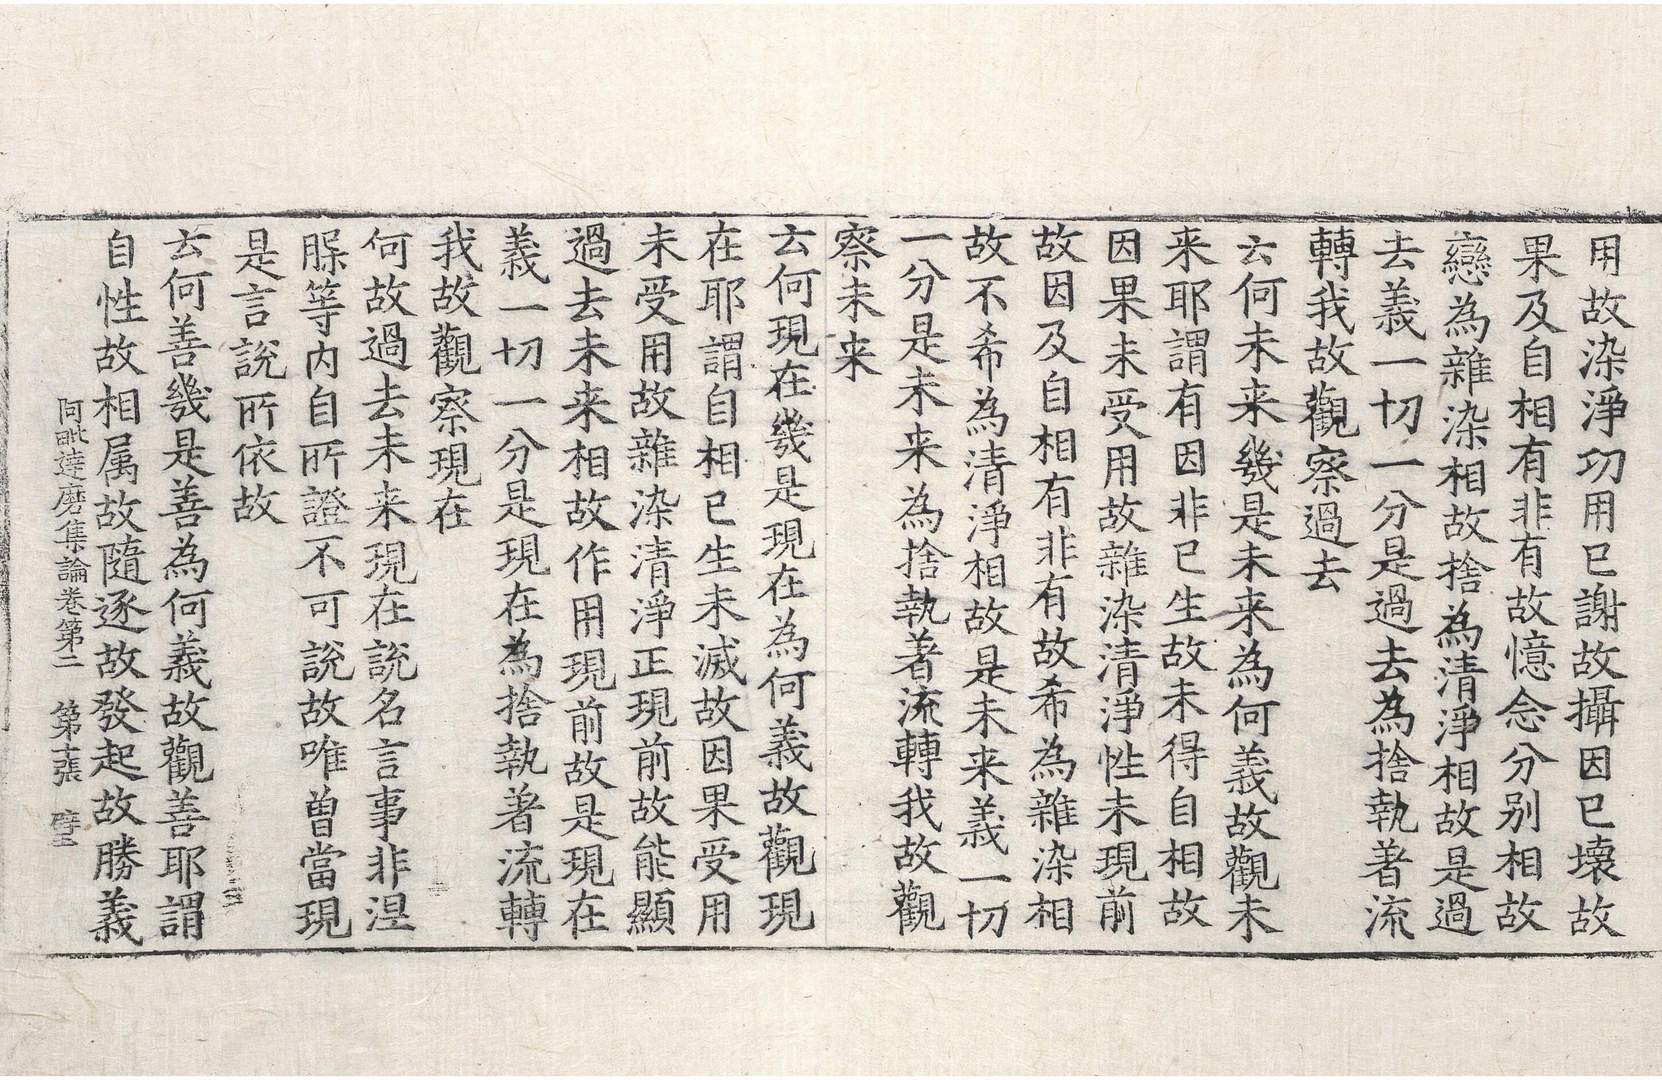 用故染淨功用已謝故攝因已壞故
果及自相有非有故憶念分別相故
戀為雜染相故捨為清淨相故是過
去義一切一分是過去為捨執著流
轉我故觀察過去
云何未来幾是未来為何義故觀未
来耶謂有因非已生故未得自相故
因果未受用故雜染清淨性未現前
故因及自相有非有故希為雜染相
故不希為清淨相故是未来義一切
一分是未来為捨執著流轉我故觀
察未来
云何現在幾是現在為何義故觀現
在耶謂自相已生未滅故因果受用
未受用故雜染清淨正現前故能顯
過去未来相故作用現前故是現在
義一切一分是現在為捨執著流轉
我故觀察現在
何故過去未来現在說名言事非涅
槃等内自所證不可說故唯曾當現
是言說所依故
云何善幾是善為何義故觀善耶謂
自性故相属故隨逐故發起故勝義
阿毗達磨集論卷第二 第十張